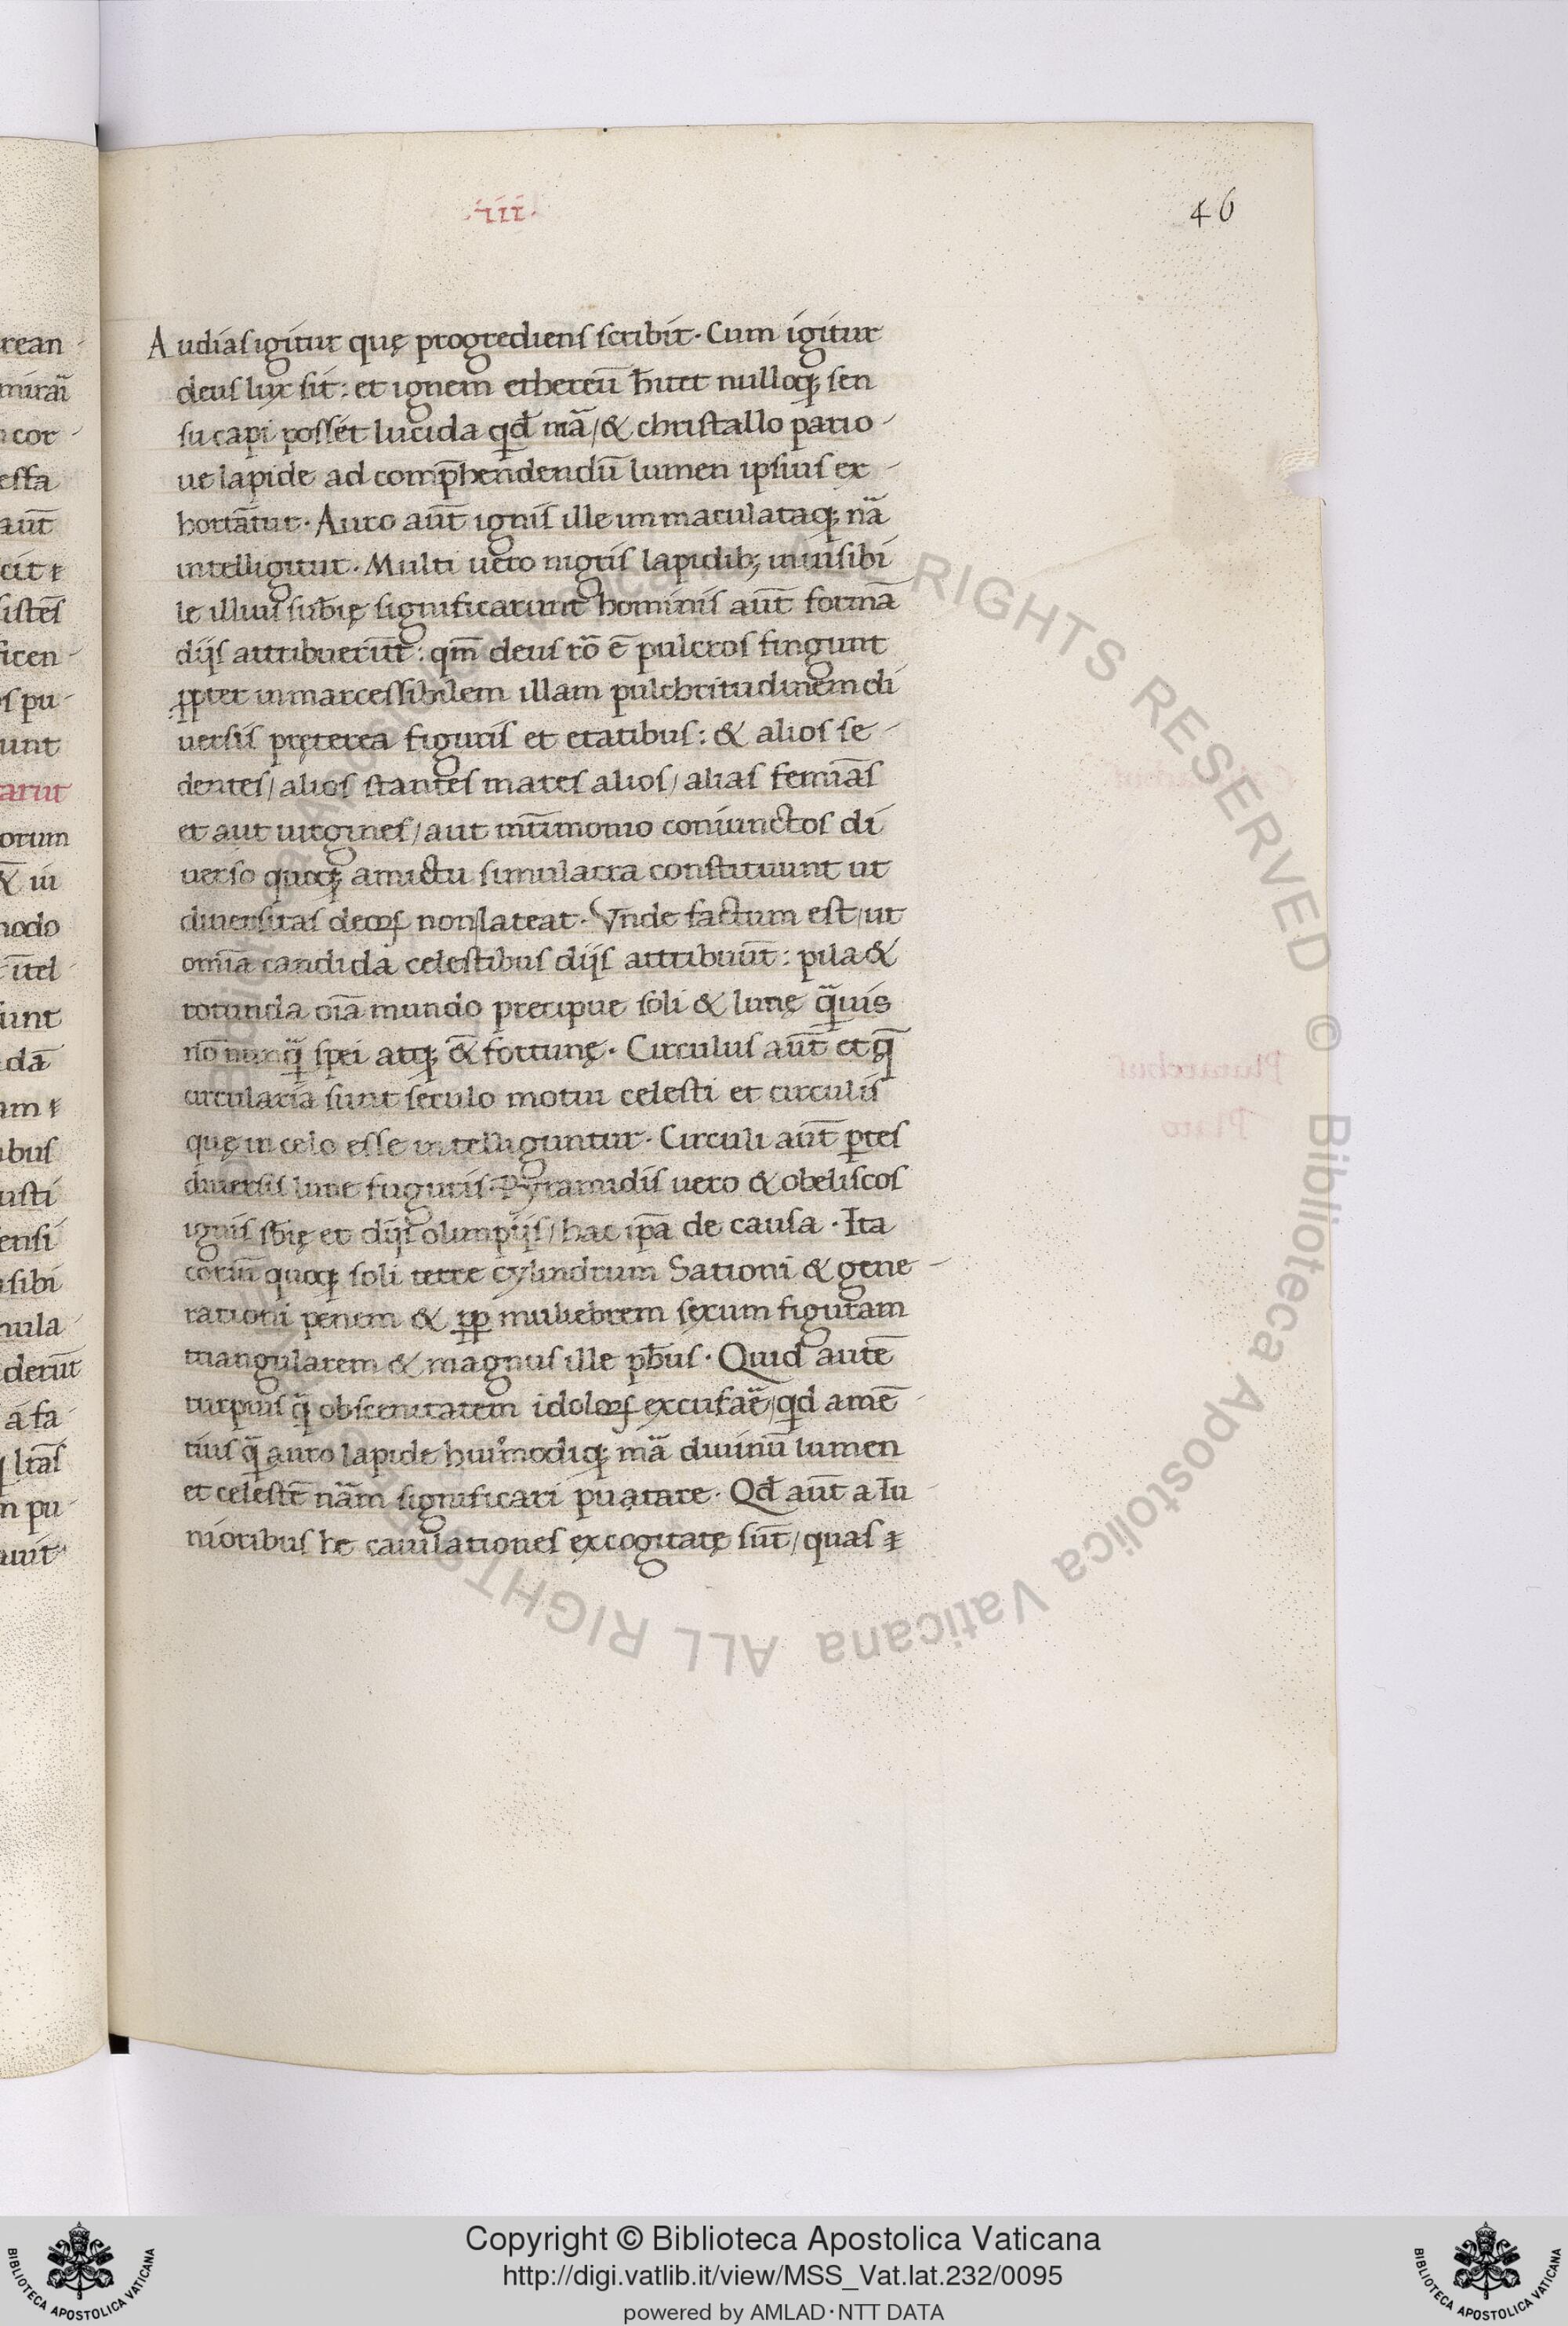 .iii.
46
Audias igitur quę progrediens scribit. Cum igitur
deus lux sit: et ignem ethereū h̄itet nulloq; sen
su capi posset lucida qd̄ mā/& christallo pario
ue lapide ad comp̄hendendū lumen ipsius ex
hortātur. Auro aūt ignis ille inmaculataq; nā
intelligitur. Multi uero nigris lapidib; inuisibi
le illius sub̄ię significarunt hominis aūt formā
dijs attribuerūt: qm̄ deus rō ē pulcros fingunt
ꝓpter inmarcessibilem illam pulchritudinem di
uersis pręterea figuris et etatibus: & alios se
dentes/alios stantes mares alios/alias femīas
et aut uirgines/aut mr̄imonio coniunctos di
uerso quoq; amictu simulacra constituunt ut
diuersitas deoꝝ non lateat. Vnde factum est/ut
omīa candida celestibus dijs attribuūt: pila &
rotunda oīa mundo precipue soli & lunę q̄uis
nō nunq̄ spei atq; & fortunę. Circulus aūt et q̄
circularia sunt seculo motui celesti et circulis
quę in celo esse intelliguntur. Circuli aūt ꝑtes
diuersis lune figuris. Pyramidis uero & obeliscos
ignis sb̄ię et dijs olimpijs/hac ip̄a de causa. Ita
corū quoq; soli terre cylindrum Sationi & gene
rationi penem & ꝓp muliebrem sexum figuram
triangularem & magnus ille ph̄us. Quid autē
turpius q̄ obscenitatem idoloꝝ excusare/qd amē
tius q̄ auro lapide huiusmodiq; mā diuinū lumen
et celestē nām significari putare. Qd̄ aūt a Iu
nioribus he cauillationes excogitatę sūt/quas ⁊
Copyright © Biblioteca Apostolica Vaticana
http://digi.vatlib.it/view/MSS_Vat.lat.232/0095
powered by AMLAD·NTT DATA